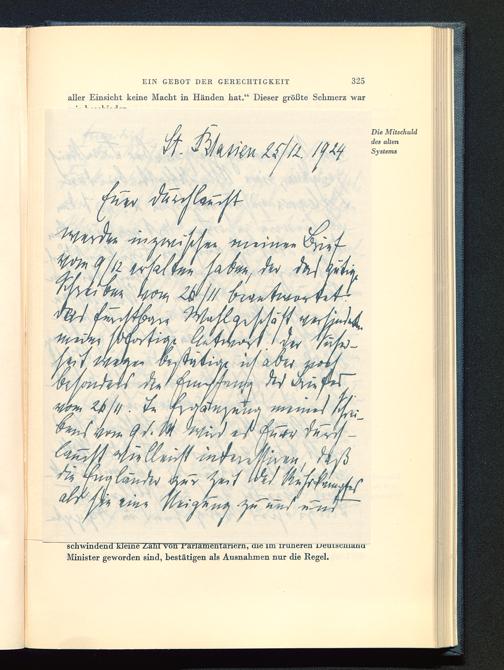 EIN GEBOT DER GERECHTIGKEIT 325
aller Einsicht keine Macht in Händen hat.“ Dieser größte Schmerz war
Die Mitschuld
des alten
Systems
St. Blasien 25/12. 1924
Euer Durchlaucht
werden inzwischen meinen Brief
vom 9/12 erhalten haben, der das gütige
Schreiben vom 26/11 beantwortet.
Das furchtbare Wahlgeschäft verhinderte
meine sofortige Antwort. Der
wegen bestätige ich aber noch
besonders den Empfang des Briefes
vom 26/11. In Ergänzung meines Schrei-
bens vom 9 d. M. wird es Euer Durch-
laucht vielleicht interessieren, daß
die Engländer zur Zeit des Ruhrkampfes
als sie eine Neigung zu uns und
schwindend kleine Zahl von Parlamentariern, die im früheren Deutschland
Minister geworden sind, bestätigen als Ausnahmen nur die Regel.